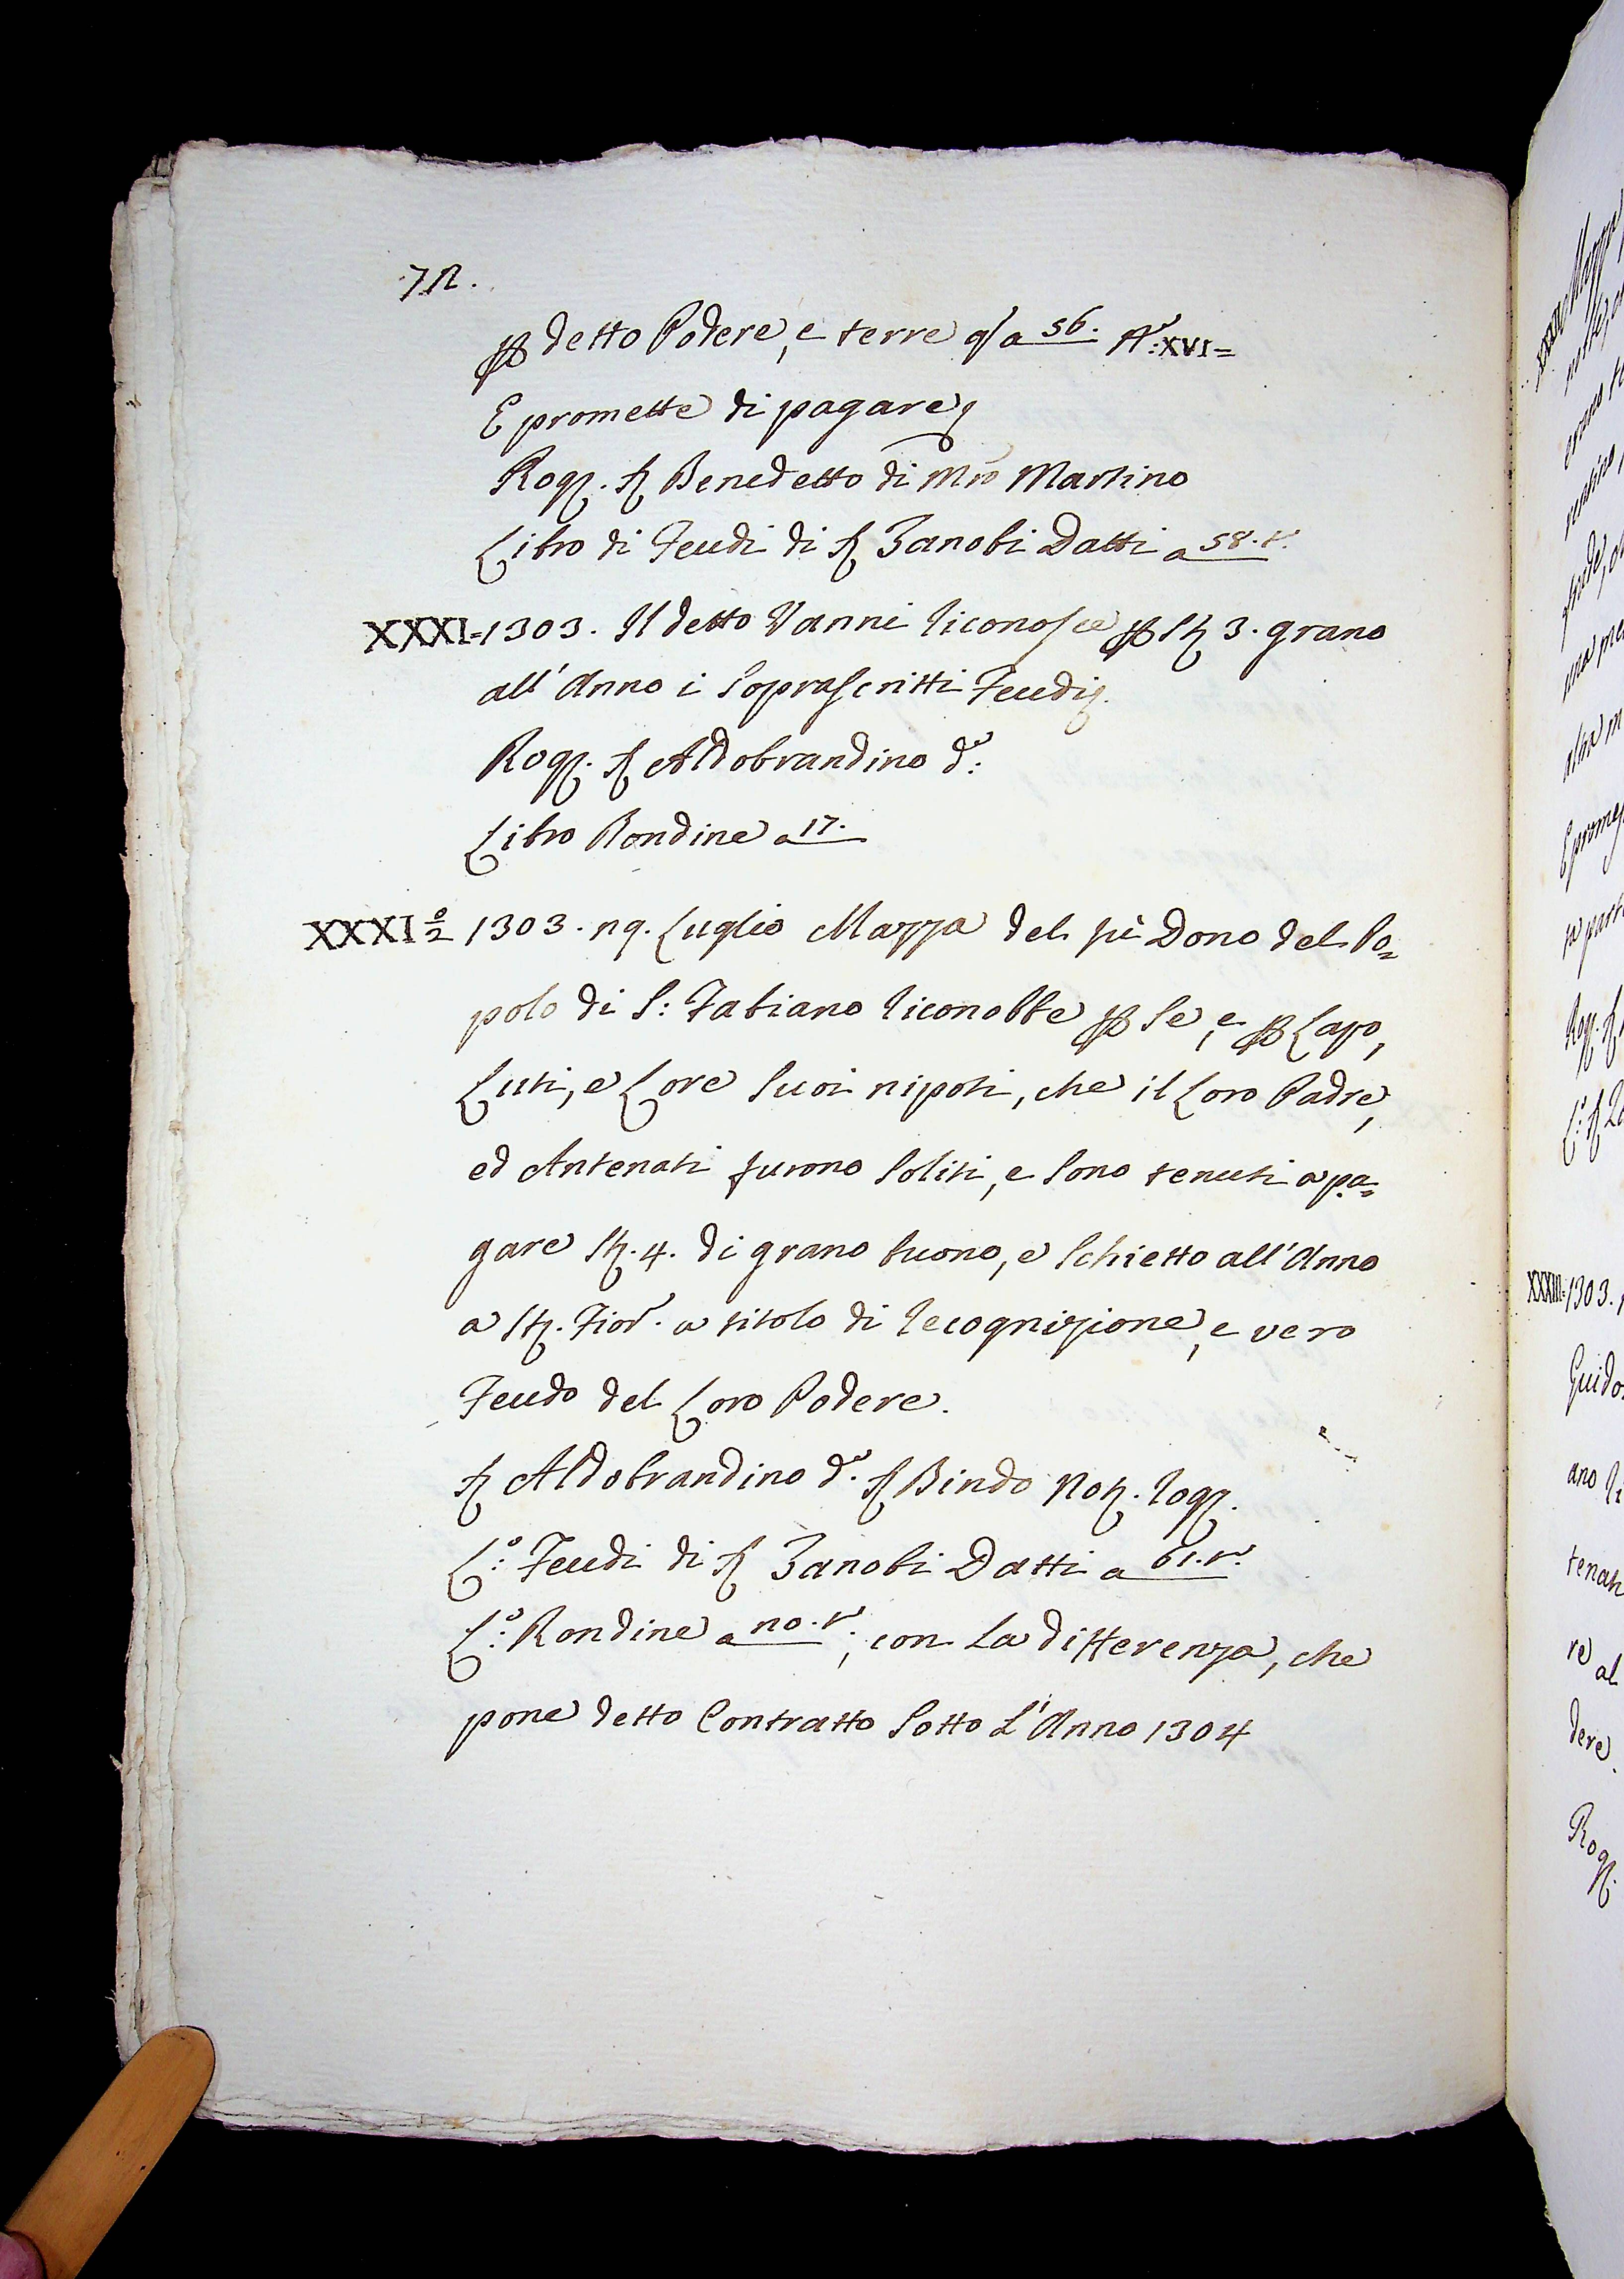 72.
p detto Podere, e terre q/a 56. N: XVI=
E promette di pagare
Rog. S Benedetto di Mro Martino
Libro di Feudi di S Zanobi Datti a 58. t.
XXXI=1303. Il detto Vanni riconosce p St 3. grano
all' Anno i soprascritti Feudi
Rog. S Aldobrandino d:
Libro Rondine a 17.
XXXI 0/2 1303. 29. Luglio Mazza del fù Dono del Po=
polo di S: Fabiano riconobbe p se, e p Lapo,
Luti, e Lore suoi nipoti, che il Loro Padre,
ed Antenati furono soliti, e sono tenuti a pa=
gare St. 4. di grano buono, e schietto all' Anno
a St. Fior. a titolo di recognizione, e vero
Feudo del Loro Podere.
S Aldobrandino d. S Bindo Not. rog.
L:o Feudi di S Zanobi Datti a 61. t.
L:o Rondine a 20. t., con la differenza, che
pone detto Contratto sotto l' Anno 1304
XXXIII=1303.
Guido
ano
tenati
re al
dere.
Rog.